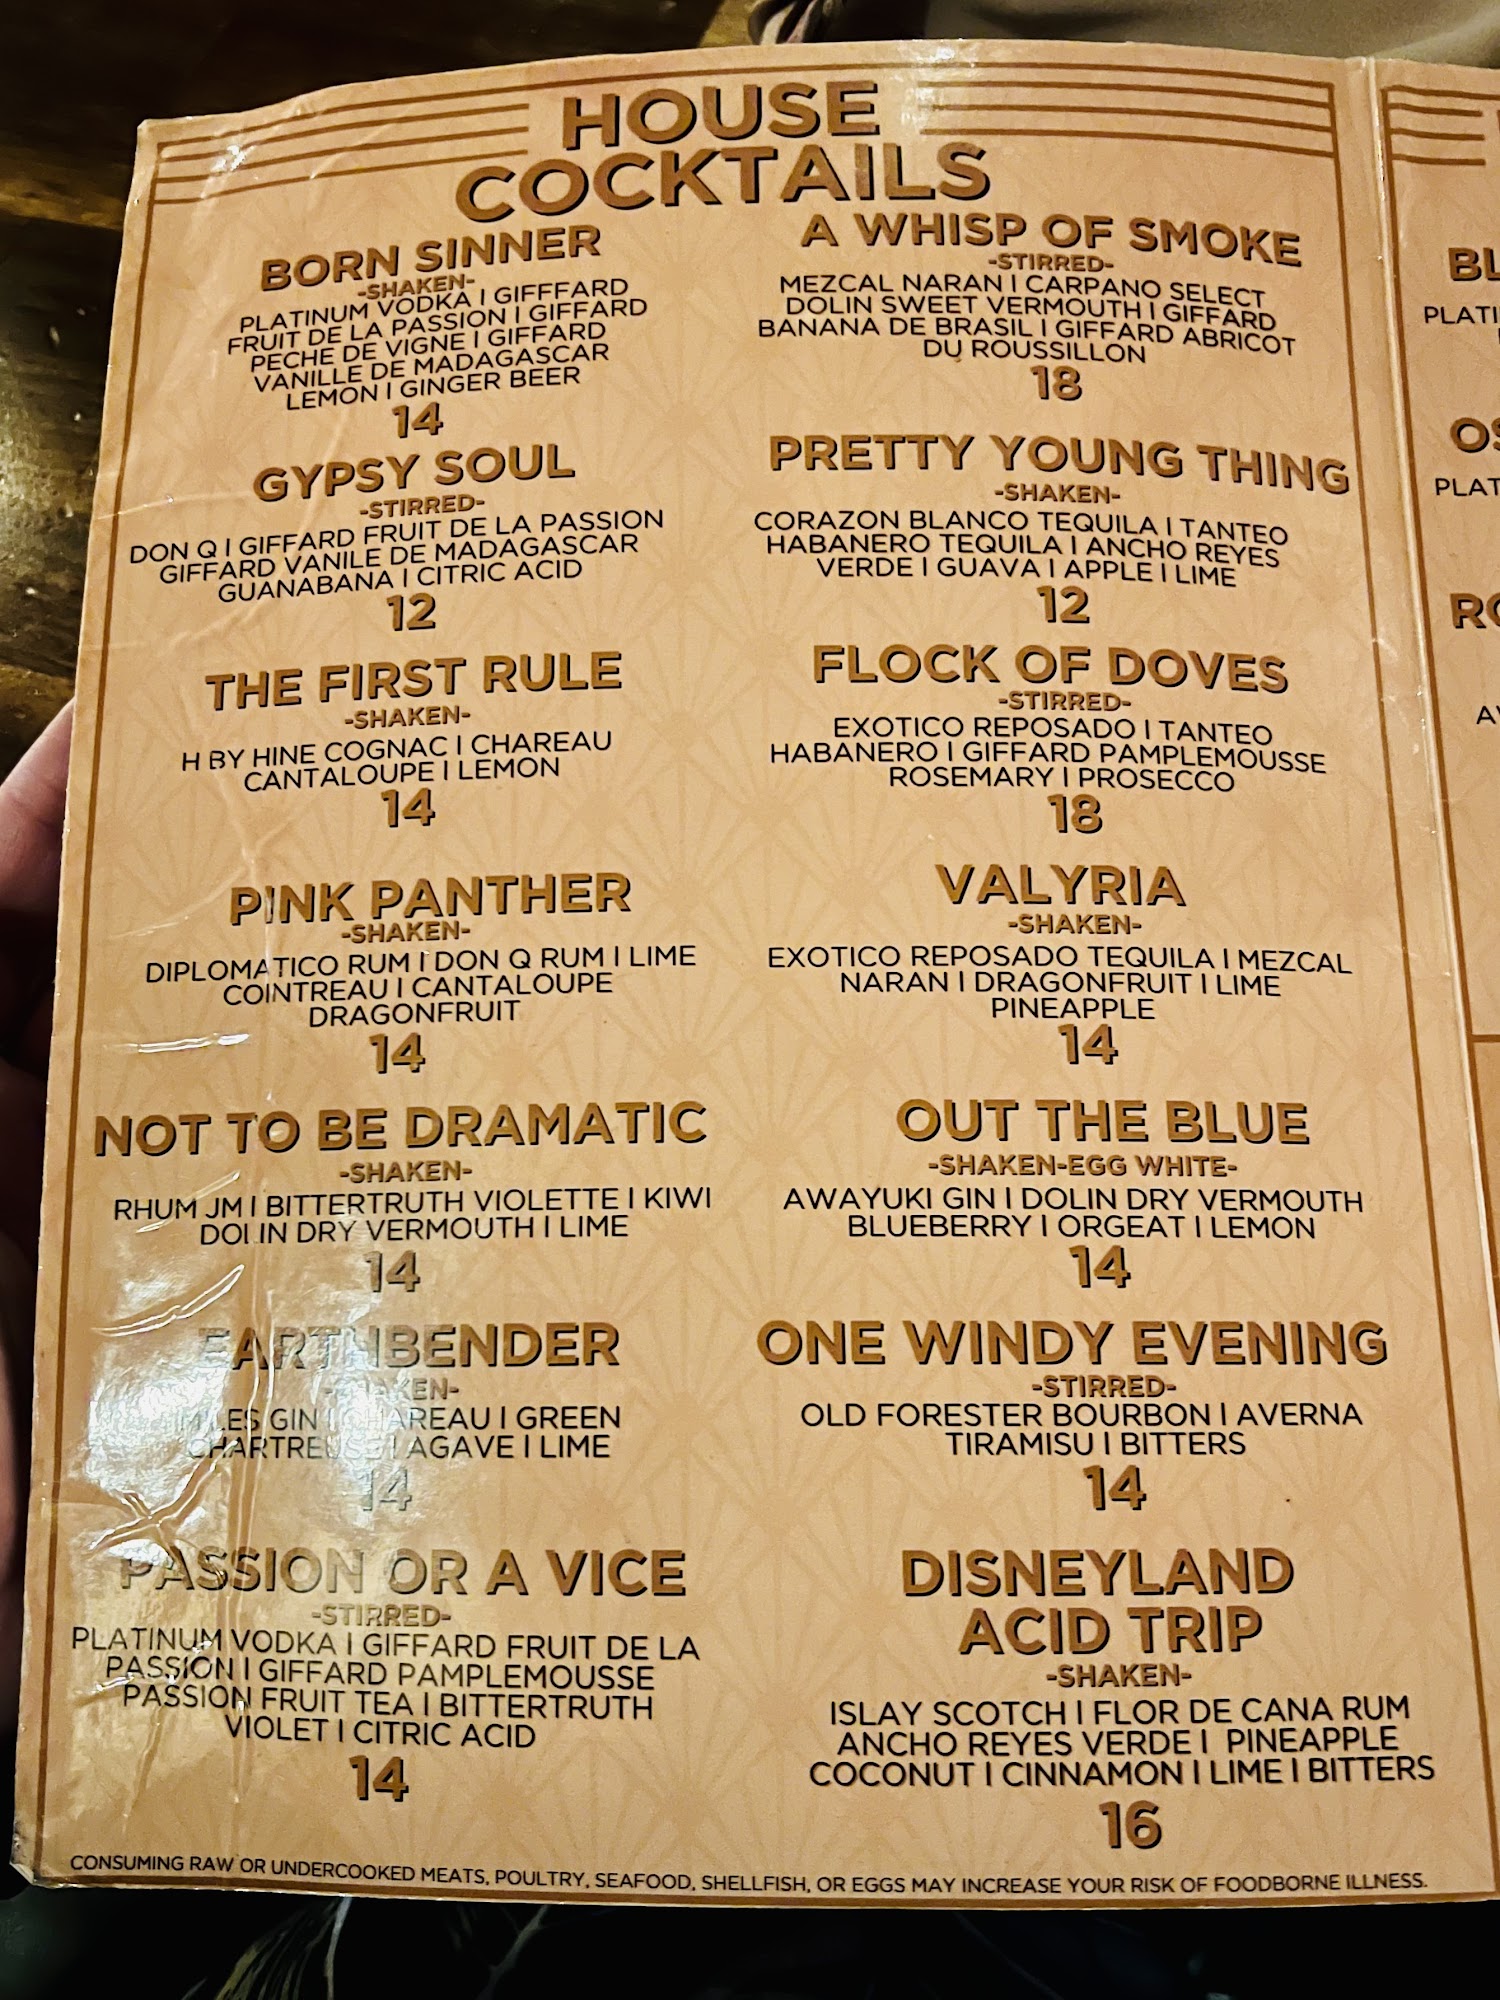 HOUSE
COCKTAILS
BORN SINNER
-SHAKEN-
PLATINUM VODKA I GIFFFARD
FRUIT DE LA PASSION I GIFFARD
PECHE DE VIGNE I GIFFARD
VANILLE DE MADAGASCAR
LEMON I GINGER BEER
14
GYPSY SOUL
-STIRRED-
DON Q I GIFFARD FRUIT DE LA PASSION
GIFFARD VANILE DE MADAGASCAR
GUANABANA I CITRIC ACID
12
THE FIRST RULE
-SHAKEN-
H BY HINE COGNAC I CHAREAU
CANTALOUPE I LEMON
14
PINK PANTHER
-SHAKEN-
DIPLOMATICO RUM I DON Q RUM I LIME
COINTREAU I CANTALOUPE
DRAGONFRUIT
14
NOT TO BE DRAMATIC
-SHAKEN-
RHUM JM I BITTERTRUTH VIOLETTE I KIWI
DOLIN DRY VERMOUTH I LIME
14
EARTHBENDER
-SHAKEN-
MILES GIN I CHAREAU I GREEN
CHARTREUSE I AGAVE I LIME
14
PASSION OR A VICE
-STIRRED-
PLATINUM VODKA I GIFFARD FRUIT DE LA
PASSION I GIFFARD PAMPLEMOUSSE
PASSION FRUIT TEA I BITTERTRUTH
VIOLET I CITRIC ACID
14
A WHISP OF SMOKE
-STIRRED-
MEZCAL NARAN I CARPANO SELECT
DOLIN SWEET VERMOUTH I GIFFARD
BANANA DE BRASIL I GIFFARD ABRICOT
DU ROUSSILLON
18
PRETTY YOUNG THING
-SHAKEN-
CORAZON BLANCO TEQUILA I TANTEO
HABANERO TEQUILA I ANCHO REYES
VERDE I GUAVA I APPLE I LIME
12
FLOCK OF DOVES
-STIRRED-
EXOTICO REPOSADO I TANTEO
HABANERO I GIFFARD PAMPLEMOUSSE
ROSEMARY I PROSECCO
18
VALYRIA
-SHAKEN-
EXOTICO REPOSADO TEQUILA I MEZCAL
NARAN I DRAGONFRUIT I LIME
PINEAPPLE
14
OUT THE BLUE
-SHAKEN-EGG WHITE-
AWAYUKI GIN I DOLIN DRY VERMOUTH
BLUEBERRY I ORGEAT I LEMON
14
ONE WINDY EVENING
-STIRRED-
OLD FORESTER BOURBON I AVERNA
TIRAMISU I BITTERS
14
DISNEYLAND
ACID TRIP
-SHAKEN-
ISLAY SCOTCH I FLOR DE CANA RUM
ANCHO REYES VERDE I PINEAPPLE
COCONUT I CINNAMON I LIME I BITTERS
16
CONSUMING RAW OR UNDERCOOKED MEATS, POULTRY, SEAFOOD, SHELLFISH, OR EGGS MAY INCREASE YOUR RISK OF FOODBORNE ILLNESS.